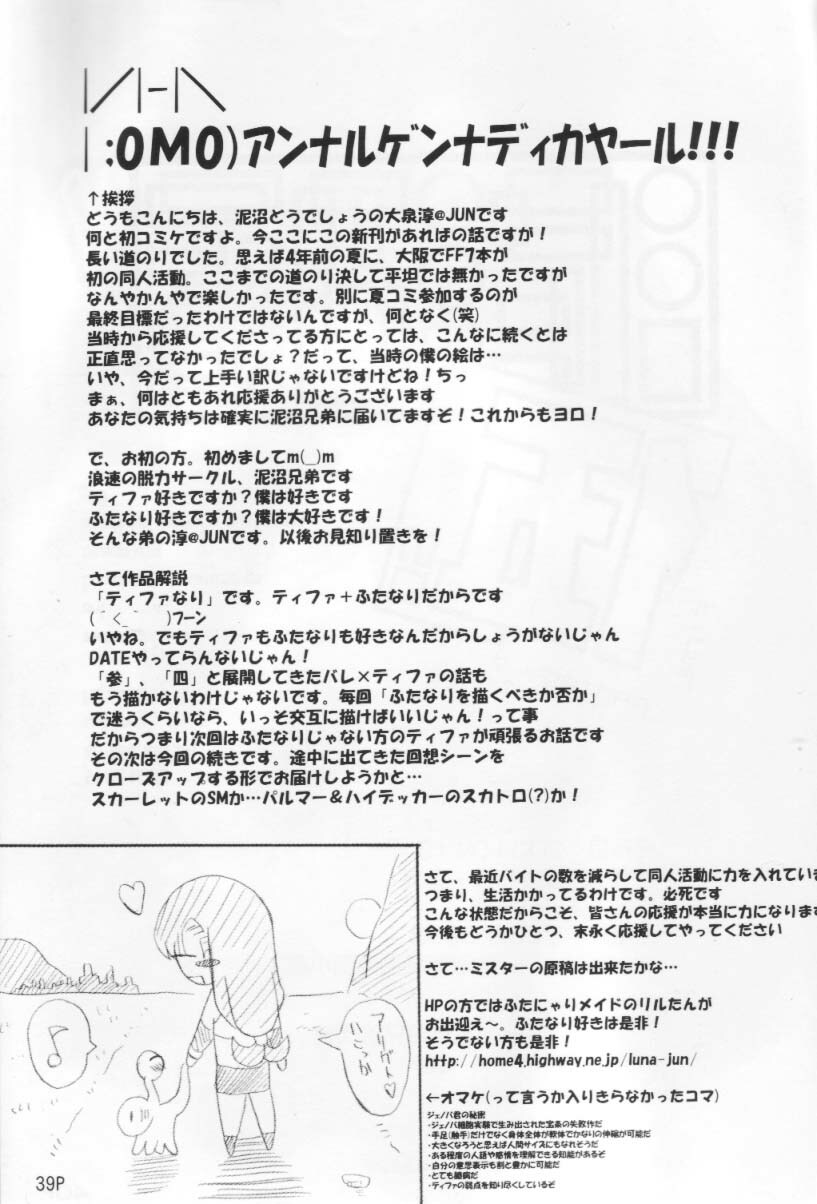 |／|-|＼
| :OMO)アンナルゲンナディカヤール!!!
↑挨拶
どうもこんにちは、泥沼どうでしょうの大泉淳@JUNです
何と初コミケですよ。今ここにこの新刊があればの話ですが！
長い道のりでした。思えば4年前の夏に、大阪でFF7本が
初の同人活動。ここまでの道のり決して平坦では無かったですが
なんやかんやで楽しかったです。別に夏コミ参加するのが
最終目標だったわけではないんですが、何となく(笑)
当時から応援してくださってる方にとっては、こんなに続くとは
正直思ってなかったでしょ？だって、当時の僕の絵は…
いや、今だって上手い訳じゃないですけどね！ちっ
まぁ、何はともあれ応援ありがとうございます
あなたの気持ちは確実に泥沼兄弟に届いてますぞ！これからもヨロ！
で、お初の方。初めましてm(_)m
浪速の脱力サークル、泥沼兄弟です
ティファ好きですか？僕は好きです
ふたなり好きですか？僕は大好きです！
そんな弟の淳@JUNです。以後お見知り置きを！
さて作品解説
「ティファなり」です。ティファ＋ふたなりだからです
(´く_｀ )フーン
いやね。でもティファもふたなりも好きなんだからしょうがないじゃん
DATEやってらんないじゃん！
「参」、「四」と展開してきたバレ×ティファの話も
もう描かないわけじゃないです。毎回「ふたなりを描くべきか否か」
で迷うくらいなら、いっそ交互に描けばいいじゃん！って事
だからつまり次回はふたなりじゃない方のティファが頑張るお話です
その次は今回の続きです。途中に出てきた回想シーンを
クローズアップする形でお届けしようかと…
スカーレットのSMか…パルマー＆ハイデッカーのスカトロ(?)か！
さて、最近バイトの数を減らして同人活動に力を入れていま
つまり、生活かかってるわけです。必死です
こんな状態だからこそ、皆さんの応援が本当に力になります
今後もどうかひとつ、末永く応援してやってください
さて…ミスターの原稿は出来たかな…
HPの方ではふたにゃりメイドのリルたんが
お出迎え～。ふたなり好きは是非！
そうでない方も是非！
http://home4.highway.ne.jp/luna-jun/
←オマケ(って言うか入りきらなかったコマ)
ジェノバ君の秘密
・ジェノバ細胞実験で生み出された宝条の失敗作だ
・手足(触手)だけでなく身体全体が軟体でかなりの伸縮が可能だ
・大きくなろうと思えば人間サイズにもなれそうだ
・ある程度の人語や感情を理解できる知能があるぞ
・自分の意思表示も割と豊かに可能だ
・とても臆病だ
・ティファの弱点を知り尽くしているぞ
♪
39P